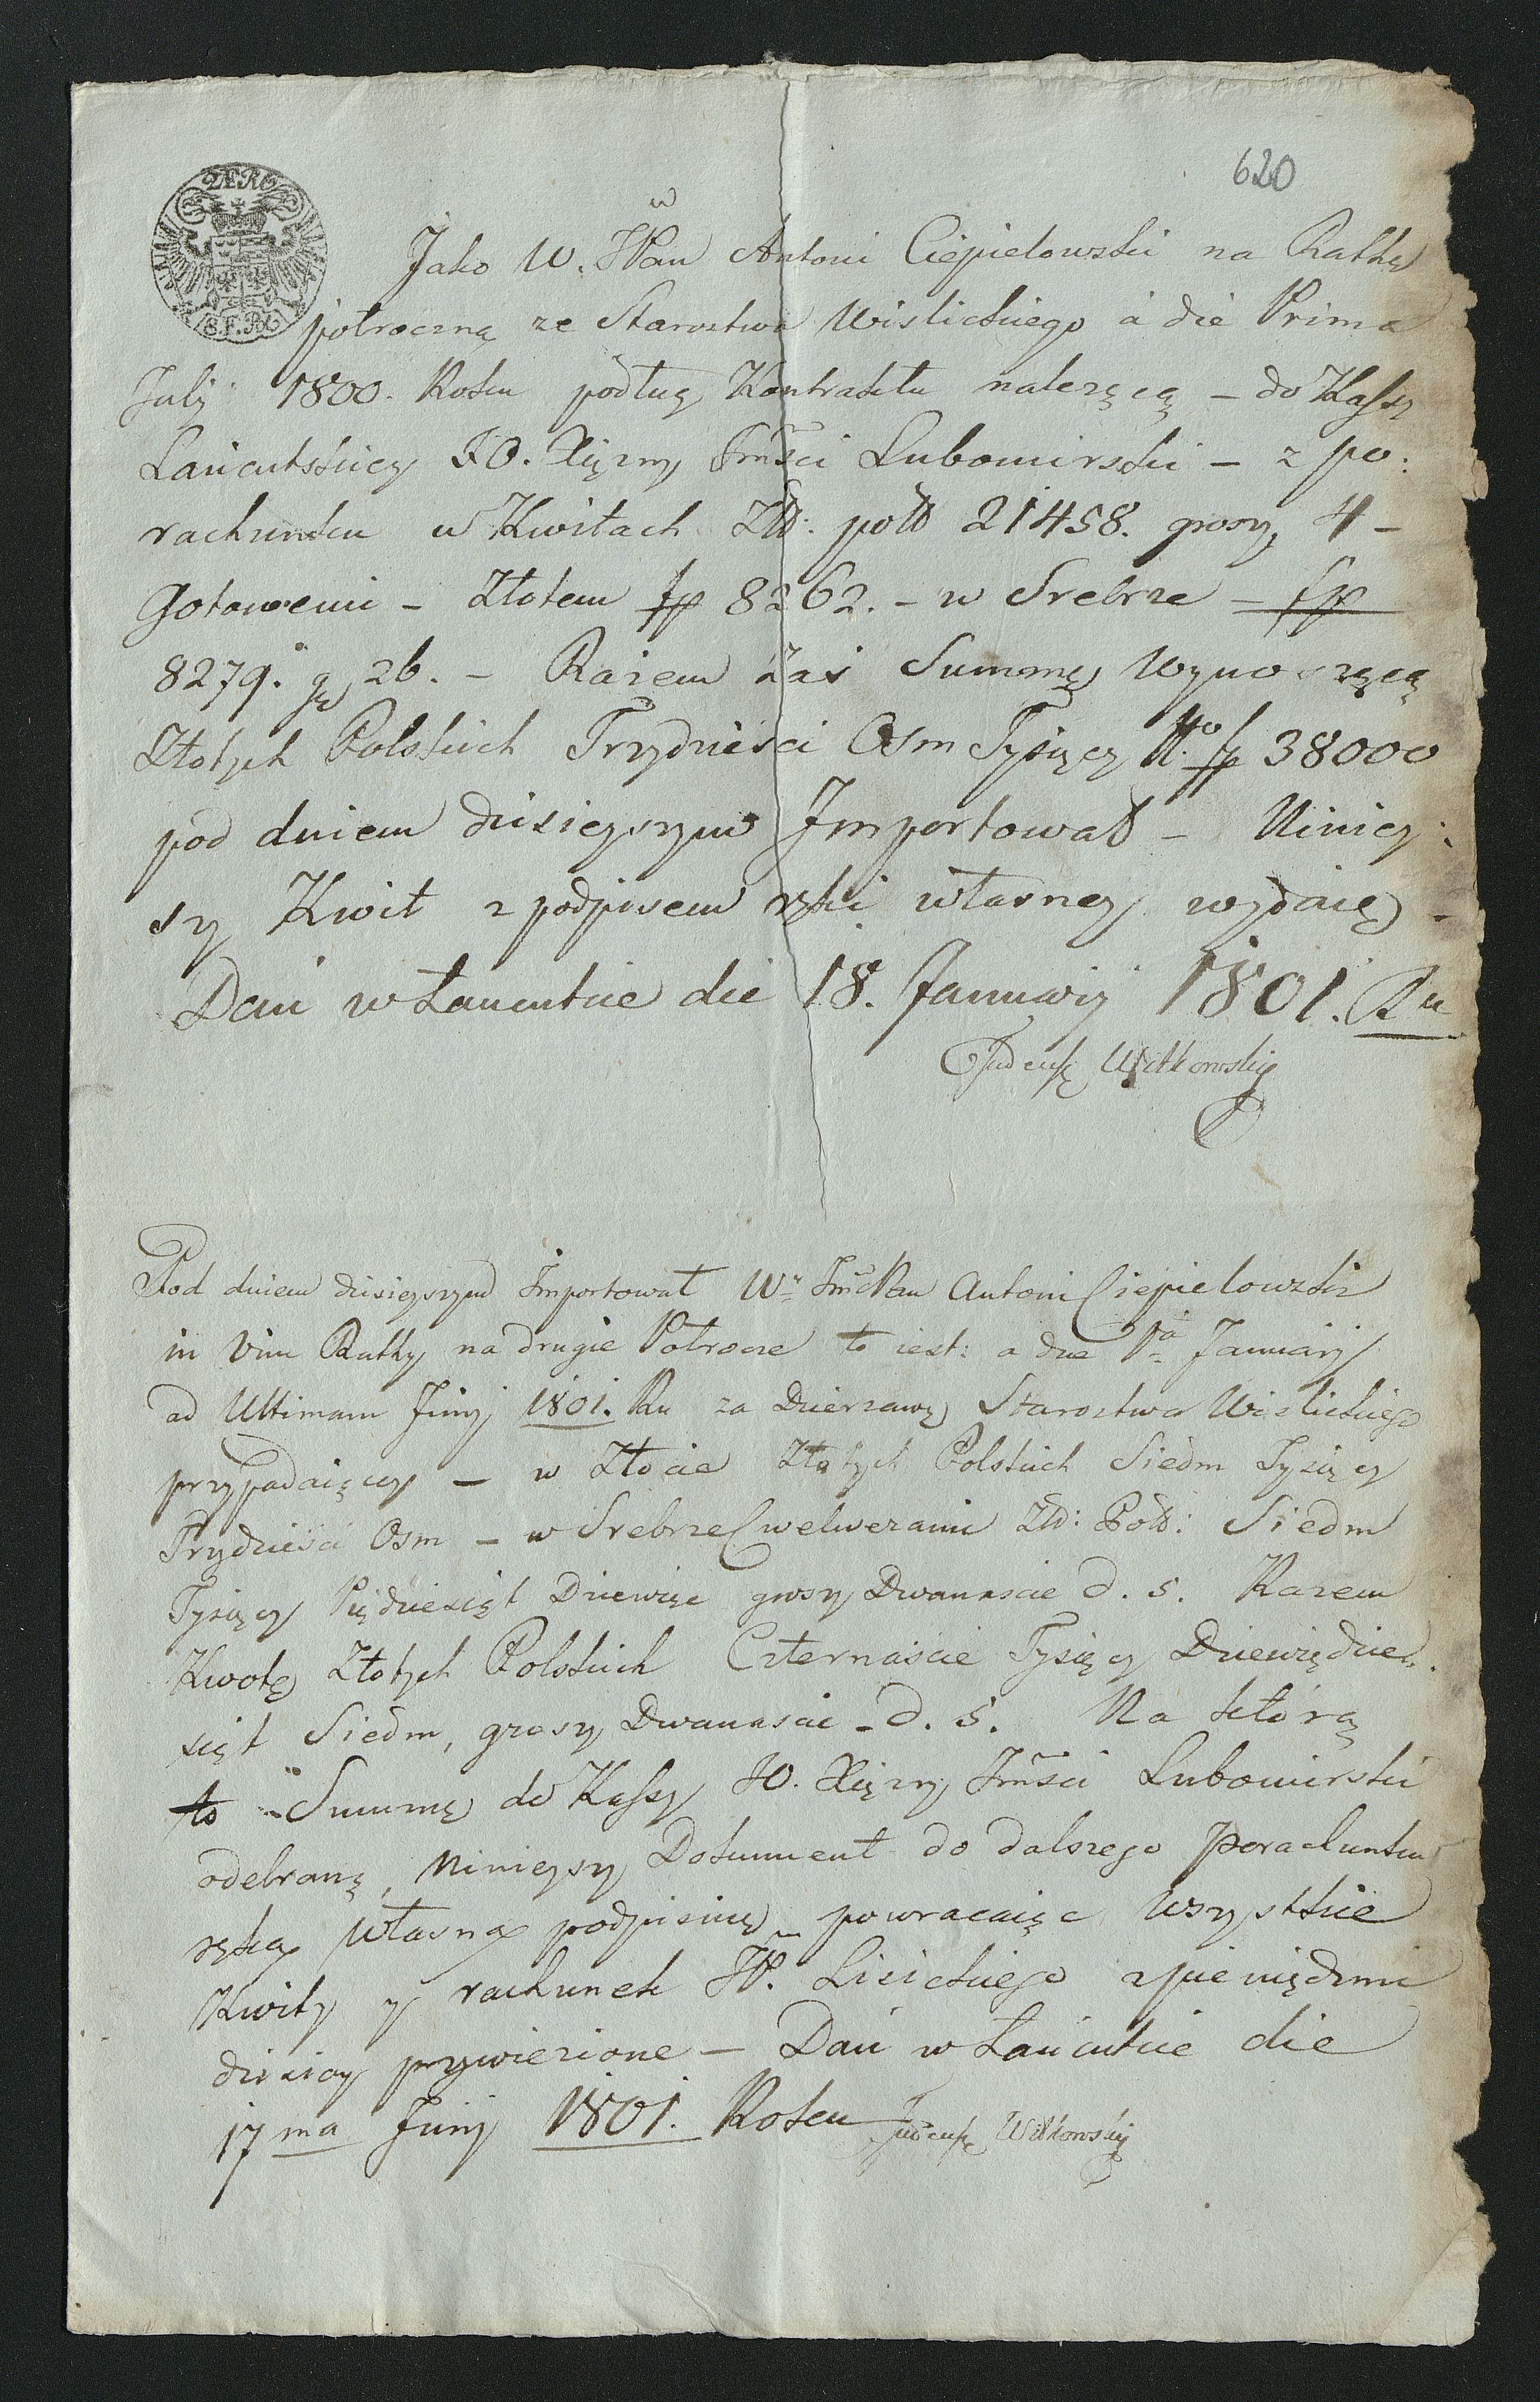 620
Jako W. JPan Antoni Ciepielowski na Rathę
połroczną ze Starostwa Wislickiego á die Prima
Julij 1800. Roku podług Kontraktu nalezącą – do Kassy
Łańcutskiey JO. Xiężny Jmści Lubomirski – z po:
rachunku w Kwitach Złł: polł 21458. groszy 4 –
Gotowemi – Złotem fp 8262. – w Srebrze – fp
8279. gr 26. – Razem Zaś Summę Wynoszącą
Złotych Polskich Trzydzieści Osm Tysięcy No fp 38000
pod dniem dzisieyszym Importował – Niniey:
szy Kwit z podpisem ręki własney wydaię –
Dan w Łancutie die 18. Januarij 1801. Ru
Tadeusz Witkowski
Pod dniem dzisieyszym Importował Wy JmćPan Antoni Ciepielowski
in Vim Rathy na drugie Połrocze to iest: a die 1a Januarij
ad Ultimam Junij 1801. Ru za Dzierzawę Starostwa Wislickiego
przypadaiącey – w Złocie Złotych Polskich Siedm Tysięcy
Trzydzieści Osm – w Srebrze Cwelwerami Złł: Polł: Siedm
Tysięcy Pięдziesiąt Dziewięć groszy Dwanascie d. 5. Razem
Kwotę Złotych Polskich Czternaście Tysięcy Dziewięдzie:
siąt Siedm, groszy Dwanascie – d. 5. Na którą
to Summę do Kassy JO. Xiężny Jmści Lubomirski
odebraną, Ninieyszy Dokument do dalszego porachunku
ręką własną podpisuię powracaiąc wszystkie
Kwity y rachunek JP. Lisickiego z pieniędzmi
dzisiay przywiezione – Dań w Łańcutie die
17ma Junij 1801. Roku Tadeusz Witkowski